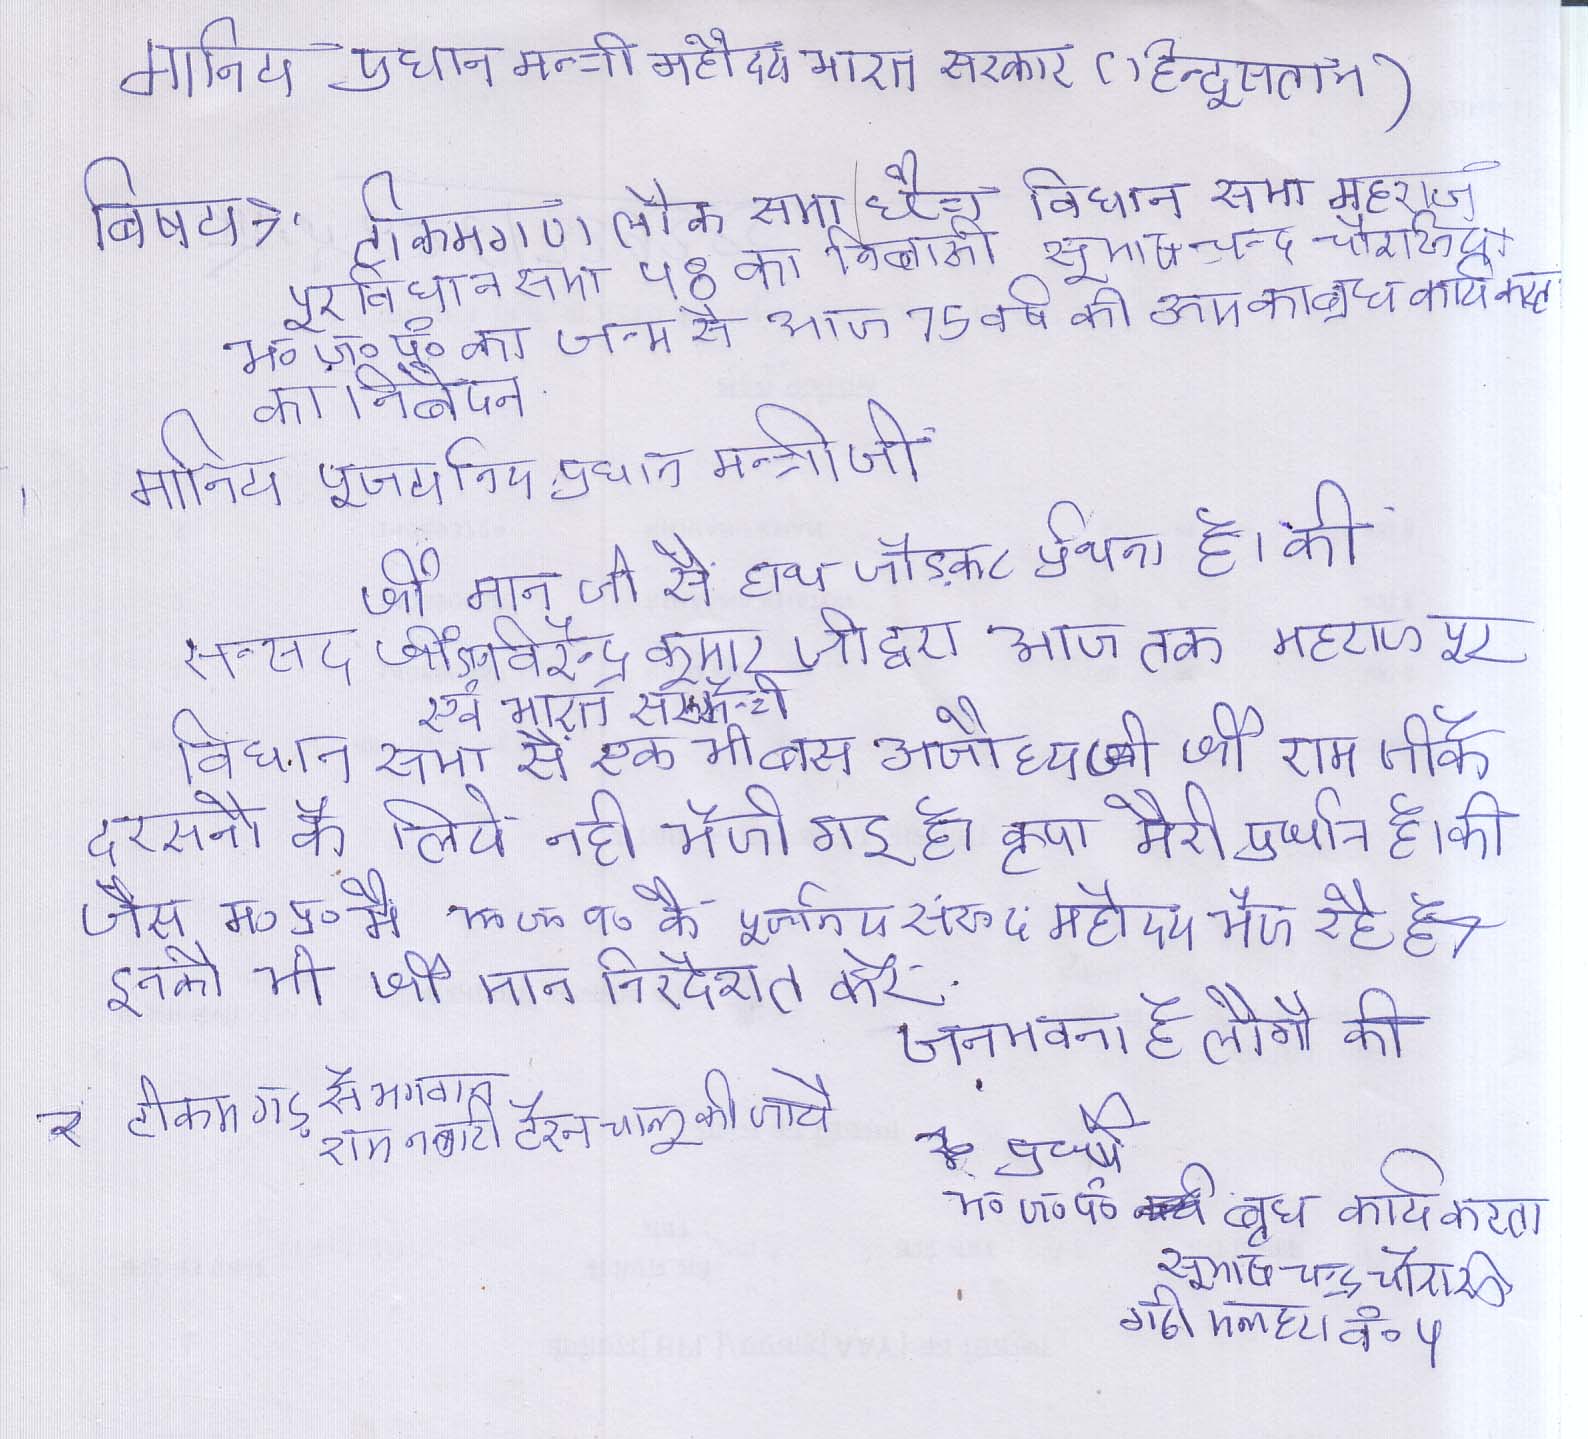 मानिय प्रधान मन्त्री महौदय भारत सरकार (हिन्दूसतान)
बिषय→ टीकमगण लौक सभा छैत्र विधान सभा महराज
पूर विधान सभा 48 का निबासी सूभाष चन्द चौरासिया
भ० ज० पं० का जन्म सै आज 75 वर्ष की का ब्रध कार्य करता
का निबैदन
मानिय पूजयनिय प्रधान मन्त्री जी
श्री मान जी सै हाथ जौड़कर प्रथना है। की
सन्सद श्री विरैन्द्र कुमार जी द्वरा आज तक महराज पूर
एवं भारत मॅन्त्री
विधान सभा सै एक भी बास अजौध्या श्री राम जी कॅ
दरसनौ कै लियै नही भॅजी गइ है। कृपा मैरी है। की
जैस म० प्र० मै भ० ज० प० कै पूजनिय संसद महौदय भॅज रहै है
इनकौ भी श्री मान निरदैशत करै.
जनभवना है लौगौ की
२ टीकम गड़ सॅ भगवान
राम टैरन चालू की जायै
भ० ज० पं० बृध कार्य करता
सूभाष चन्द्र चौरासि
गढी मलहरा वं० 5